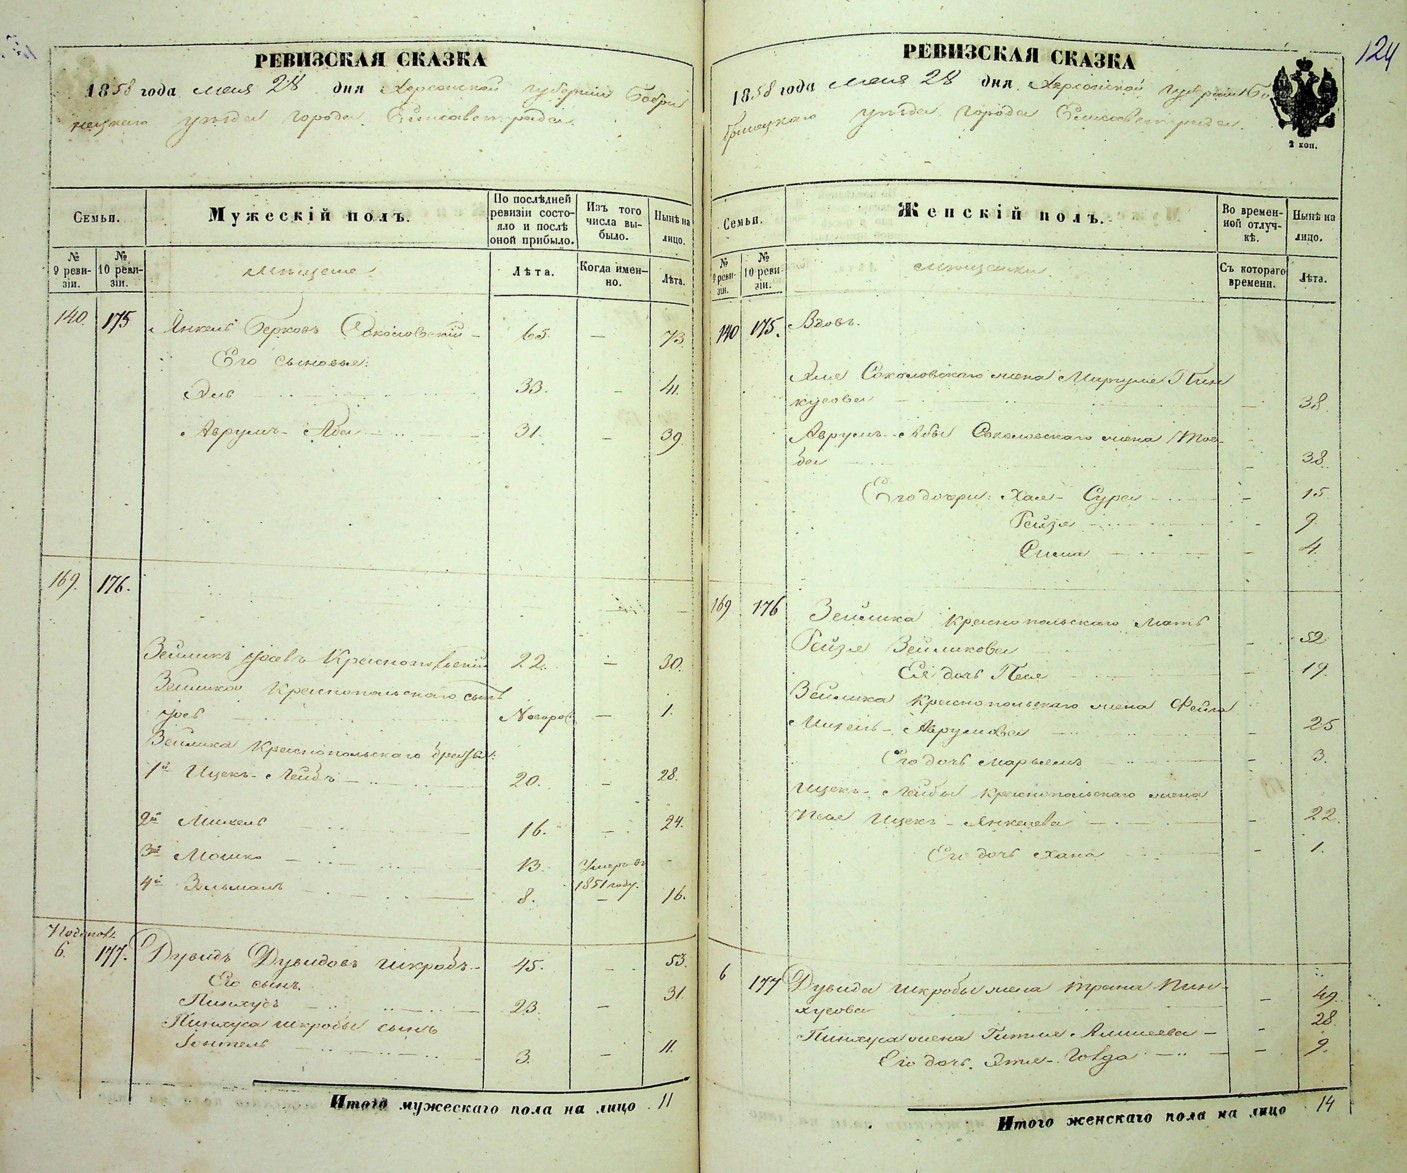 РЕВИЗСКАЯ СКАЗКА
1858 года мая 28 дня Херсонской губернии Бобри
нецкаго уѣзда города Елисаветграда.
Семьи.
Мужескій полъ.
По послѣдней ревизіи состояло и послѣ оной прибыло.
Изъ того числа выбыло.
Нынѣ на лицо.
№ 9 ревизіи.
№ 10 ревизіи.
Мѣщане
Лѣта.
Когда именно.
Лѣта.
140. 175 Янкель Берковъ Соколовскій 65. — 73.
Его сыновья:
Эль 33. — 41.
Аврумъ-Аба 31. — 39.
169. 176.
Зейликъ Іосевъ Краснопольскій 22. — 30.
Зейлика Краснопольскаго сынъ
Іосъ Новорож — 1.
Зейлика Краснопольскаго братья:
1й Ицекъ-Лейбъ 20. — 28.
2й Михель 16. — 24.
3й Мошко 13. Умеръ въ 1851 году. -
4й Зельманъ 8. — 16.
6. 177. Дувидъ Дувидовъ Шкробъ 45. — 53.
Его сынъ.
Пинхусъ 23. — 31.
Пинхуса Шкробы сынъ
3. — 11.
Итого мужескаго пола на лицо 11
124
РЕВИЗСКАЯ СКАЗКА
1858 года мая 28 дня Херсонской губерніи Бо
бринецкаго уѣзда города Елисаветграда.
2 коп.
Семьи.
Женскій полъ.
Во временной отлучкѣ.
Нынѣ на лицо.
№ 9 ревизіи.
№ 10 ревизіи.
Мѣщанки
Съ котораго времени.
Лѣта.
140 175. Вдовъ.
Эля Соколовскаго жена Мириме Пин
кусова — 38.
Аврумъ-Абы Соколовскаго жена Тов-
ба — 38.
Его дочери: Хая-Сура — 15
Рейзя — 9.
Сима — 4.
169 176 Зейлика Краснопольскаго мать
Рейзя Зейликова — 52
Ея дочь Песя — 19.
Зейлика Краснопольскаго жена Фейга
Михель-Аврумова — 25
Его дочь Марьямъ — 3.
Ицекъ-Лейбы Краснопольскаго жена
Песя Ицекъ-Янкелева — 22.
Его дочь Хана — 1.
6 177 Дувида Шкробы жена Трана Пин-
хусова — 49.
Пинхуса жена Гитля — 28
Его дочь Этля-Голда — 9.
Итого женскаго пола на лицо 14